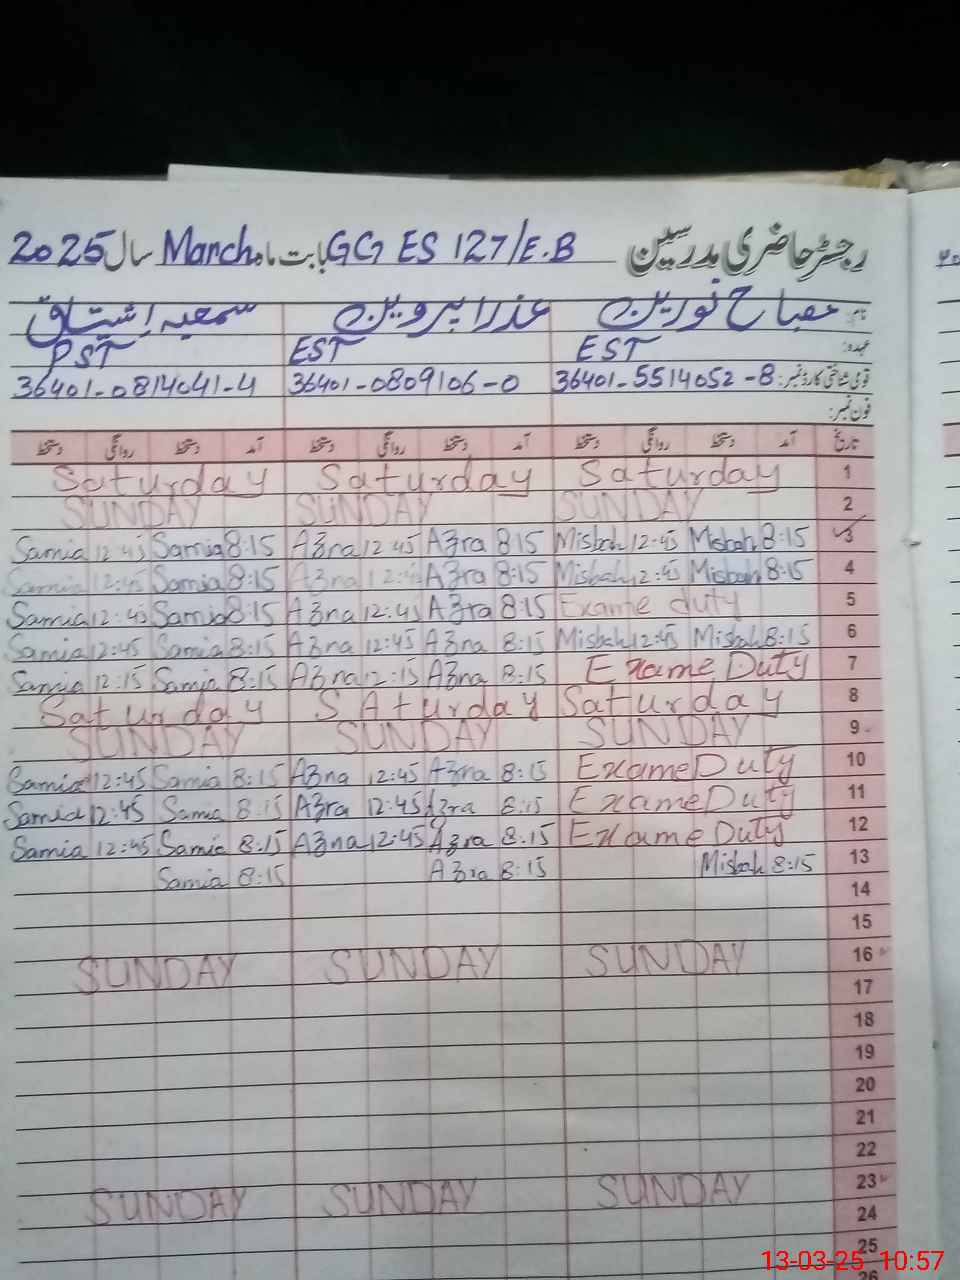 رجسٹر حاضری مدرسین GG ES 127/E.B بابت ماہ March سال 2025
نام: مصباح نورین عذرا پروین سمعیہ اشتیاق
عہدہ: EST EST PST
قومی شناختی کارڈ نمبر: 36401-5514052-8 36401-0809106-0 36401-0814041-4
فون نمبر:
تاریخ آمد دستخط روانگی دستخط آمد دستخط روانگی دستخط آمد دستخط روانگی دستخط
Saturday Saturday Saturday 1
SUNDAY SUNDAY SUNDAY 2
Samia 12:45 Samia 8:15 Azra 12:45 Azra 8:15 Misbah 12:45 Misbah 8:15 3
Samia 12:45 Samia 8:15 Azra 12:45 Azra 8:15 Misbah 12:45 Misbah 8:15 4
Samia 12:45 Samia 8:15 Azra 12:45 Azra 8:15 Exame duty 5
Samia 12:45 Samia 8:15 Azra 12:45 Azra 8:15 Misbah 12:45 Misbah 8:15 6
Samia 12:15 Samia 8:15 Azra 12:15 Azra 8:15 Exame Duty 7
Saturday SAturday Saturday 8
SUNDAY SUNDAY SUNDAY 9
Samia 12:45 Samia 8:15 Azra 12:45 Azra 8:15 Exame Duty 10
Samia 12:45 Samia 8:15 Azra 12:45 Azra 8:15 Exame Duty 11
Samia 12:45 Samia 8:15 Azra 12:45 Azra 8:15 Exame Duty 12
Samia 8:15 Azra 8:15 Misbah 8:15 13
14
15
SUNDAY SUNDAY SUNDAY 16
17
18
19
20
21
22
SUNDAY SUNDAY SUNDAY 23
24
25
13-03-25 10:57